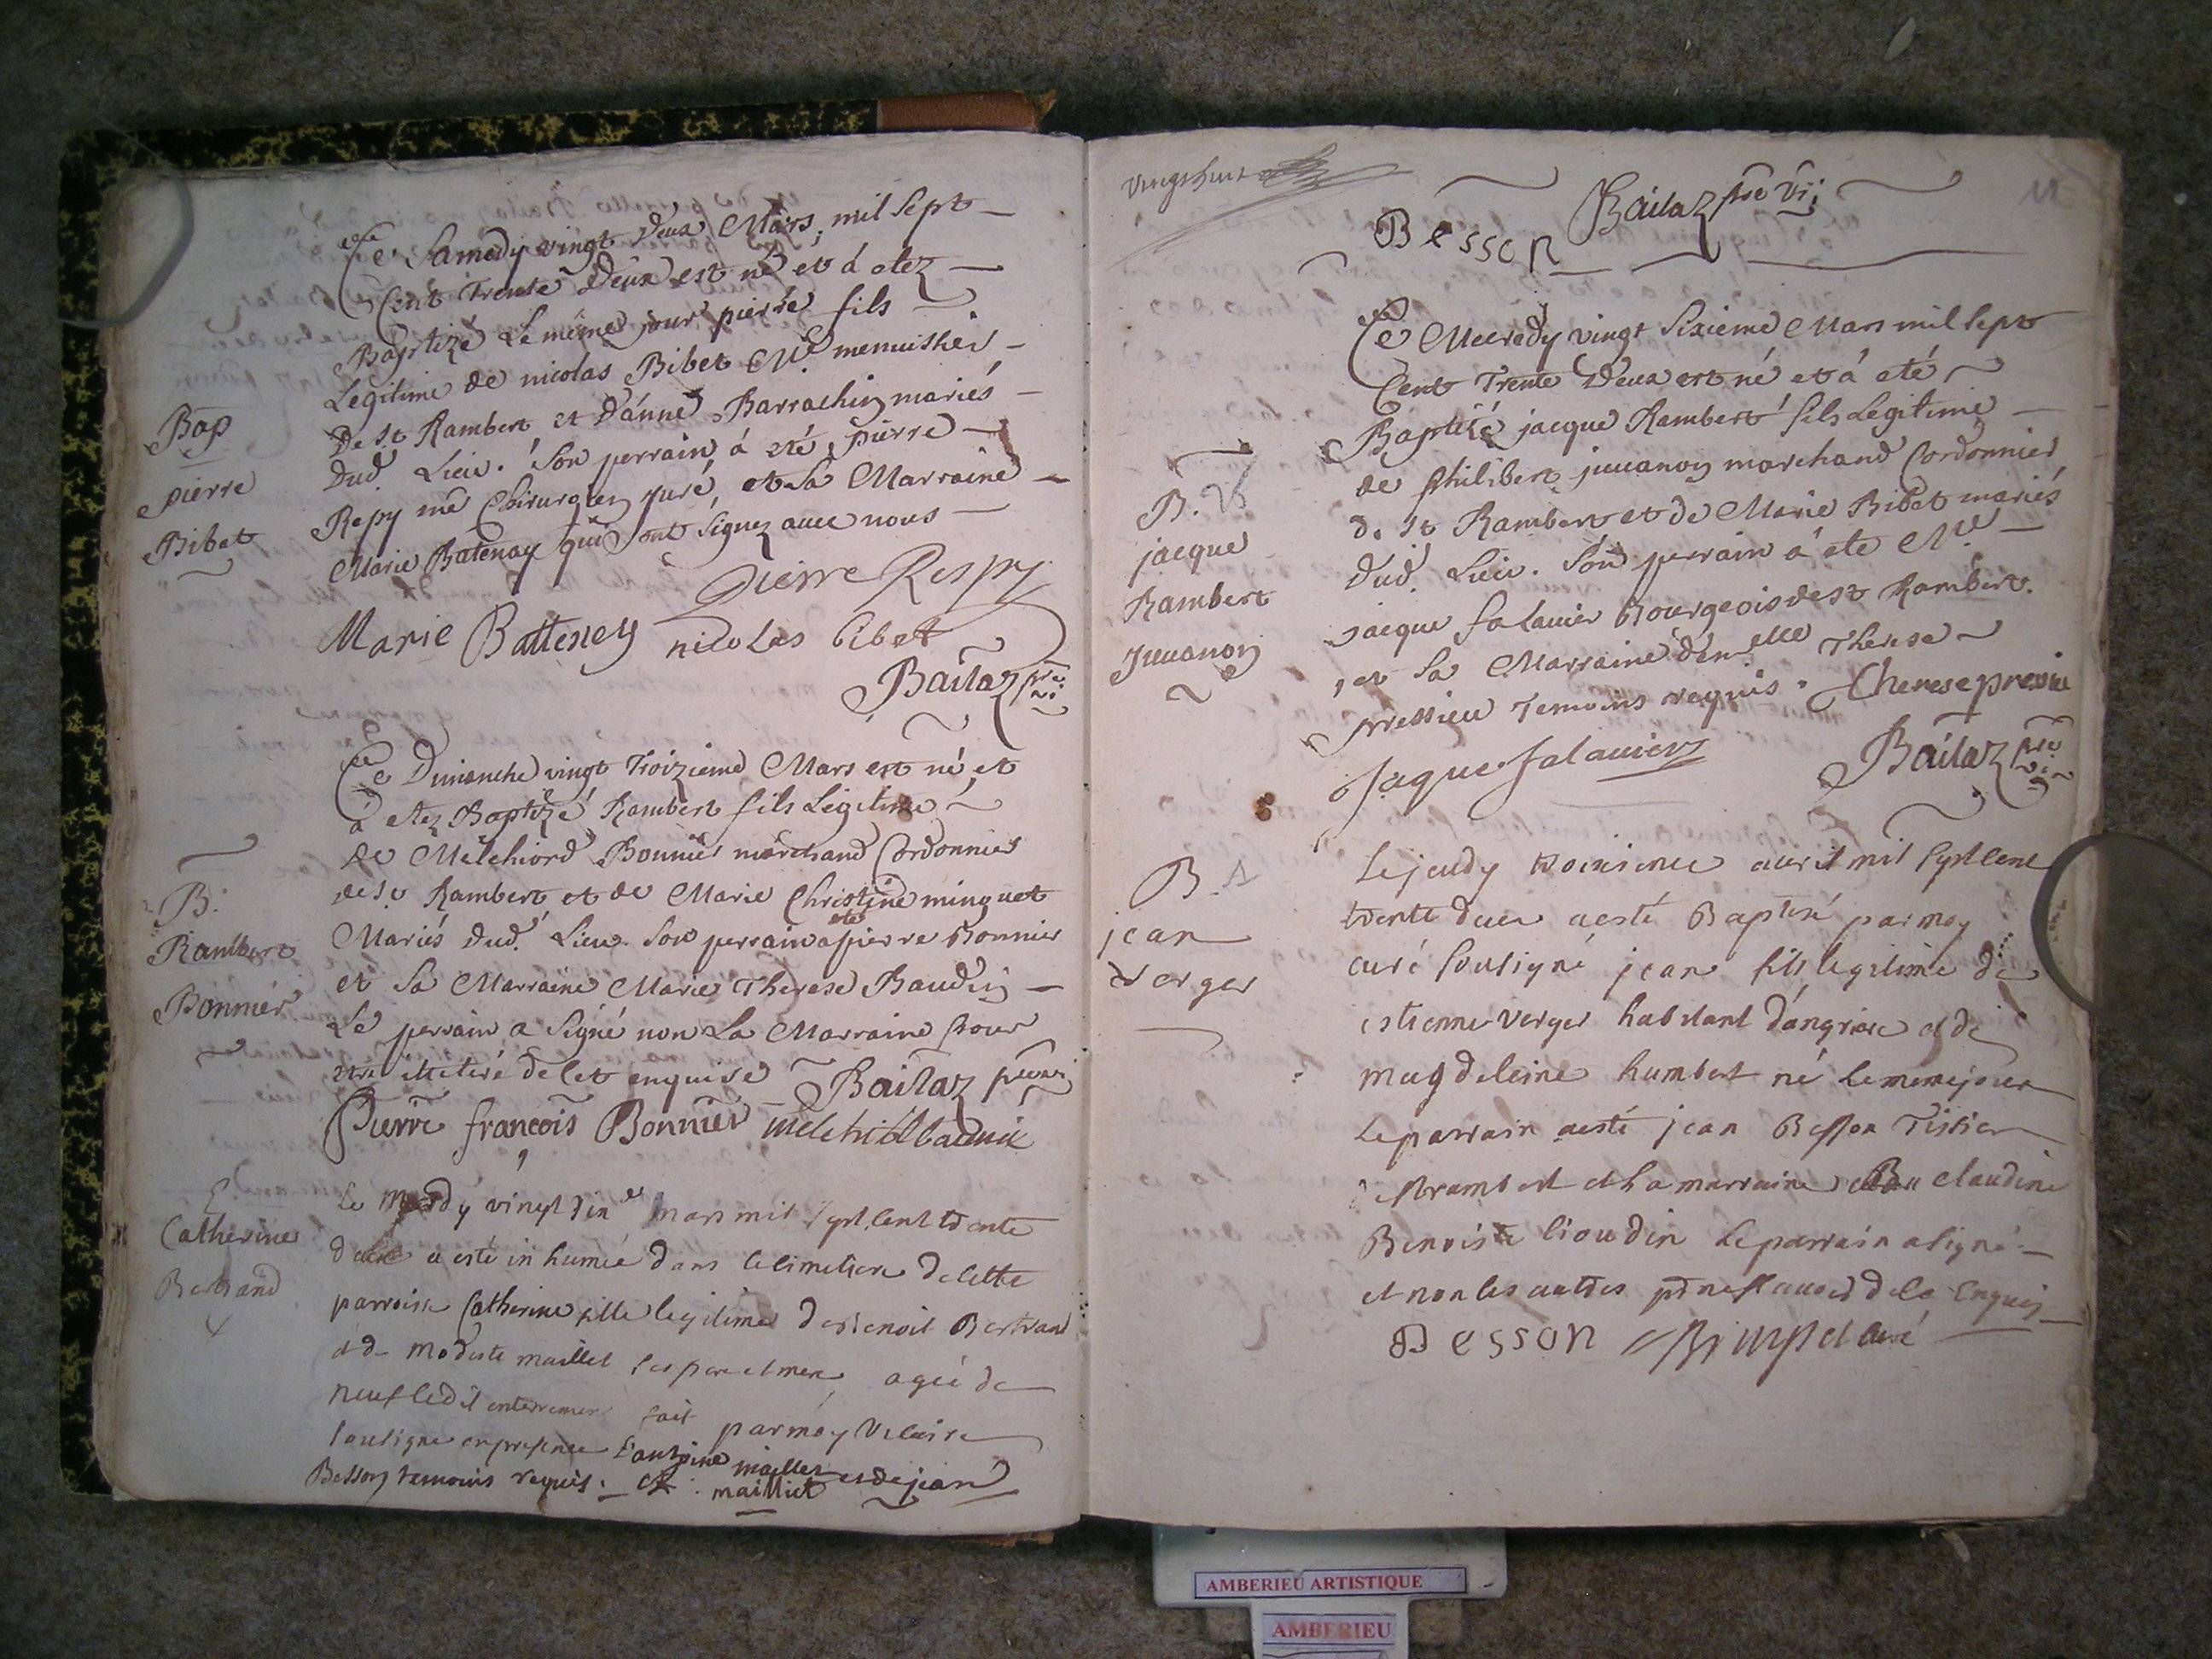 Ce Samedy vingt deux Mars, mil sept
Cent Trente Deux est né et á etez
Baptizé Le même jour pierre fils
Legitime de nicolas Bibet Me menuisier
De St Rambert et D'anne Barrachin mariés
Dud. Lieu. Son perrain á eté pierre
Repy me Chirurgien juré, et Sa Marraine
Marie Batenay qui ont Signez avec nous
Bap
pierre
Bibet
pierre Respy
Marie Batteney nicolas bibet
Bailaz pre vi
Ce Dimanche vingt Troizieme Mars est né, et
á etez Baptizé Rambert fils Légitime
de Melchiord Bonnier marchand Cordonnier
de St Rambert et de Marie Christine minguet
Mariés Dud. Lieu. Son perrain a eté pierre Bonnier
et Sa Marraine Marie Therese Baudin
Le perrain a Signé non La Marraine pour
etre illeteré de Cet enquise Bailaz pre vi
B.
Rambert
Bonnier
Pierre françois Bonnier
Le Mardy vingt mars mil sept cent trente
deux a esté inhumée dans le cimetiere de cette
parroisse Catherine fille legitime de Benoit Bertrand
et de modeste maillet ses pere et mere, agée de
neuf ledit enterrement fait par moy Vicaire
soutigne en presence d'antoine maillet et de jean
Besson temoins requis. maillict
E
Catherine
Bertrand
Besson Bailaz pre vi
Ce Mecredy vingt Sixieme Mars mil sept
Cent Trente Deux est né et á eté
Baptizé jacque Rambert fils Legitime
de philibert juuanon marchand Cordonnier
de St Rambert et de Marie Bibet mariés
Dud. Lieu. Son perrain á ete Me
jacque falauier Bourgeois de St Rambert.
, et Sa Marraine demelle Therese
pressieu Temoins requis. Therese pressiu
Jaque falauier Bailaz pre vi
B.
jacque
Rambert
Juuanon
Le jeudy troisieme avril mil sept cent
trente deux a esté Baptisé par moy
curé soutigné jean fils legitime de
estienne verger habitant d'angriere et de
magdeleine humbert né le meme jour
le parrain a esté jean Besson Tissier
St rambert et la marraine claudine
Benoiste lioudin le parrain a signé
et non les autres pr ne scauoir de ce Enquis
Besson curé
B.
jean
verger
AMBERIEU ARTISTIQUE
AMBERIEU